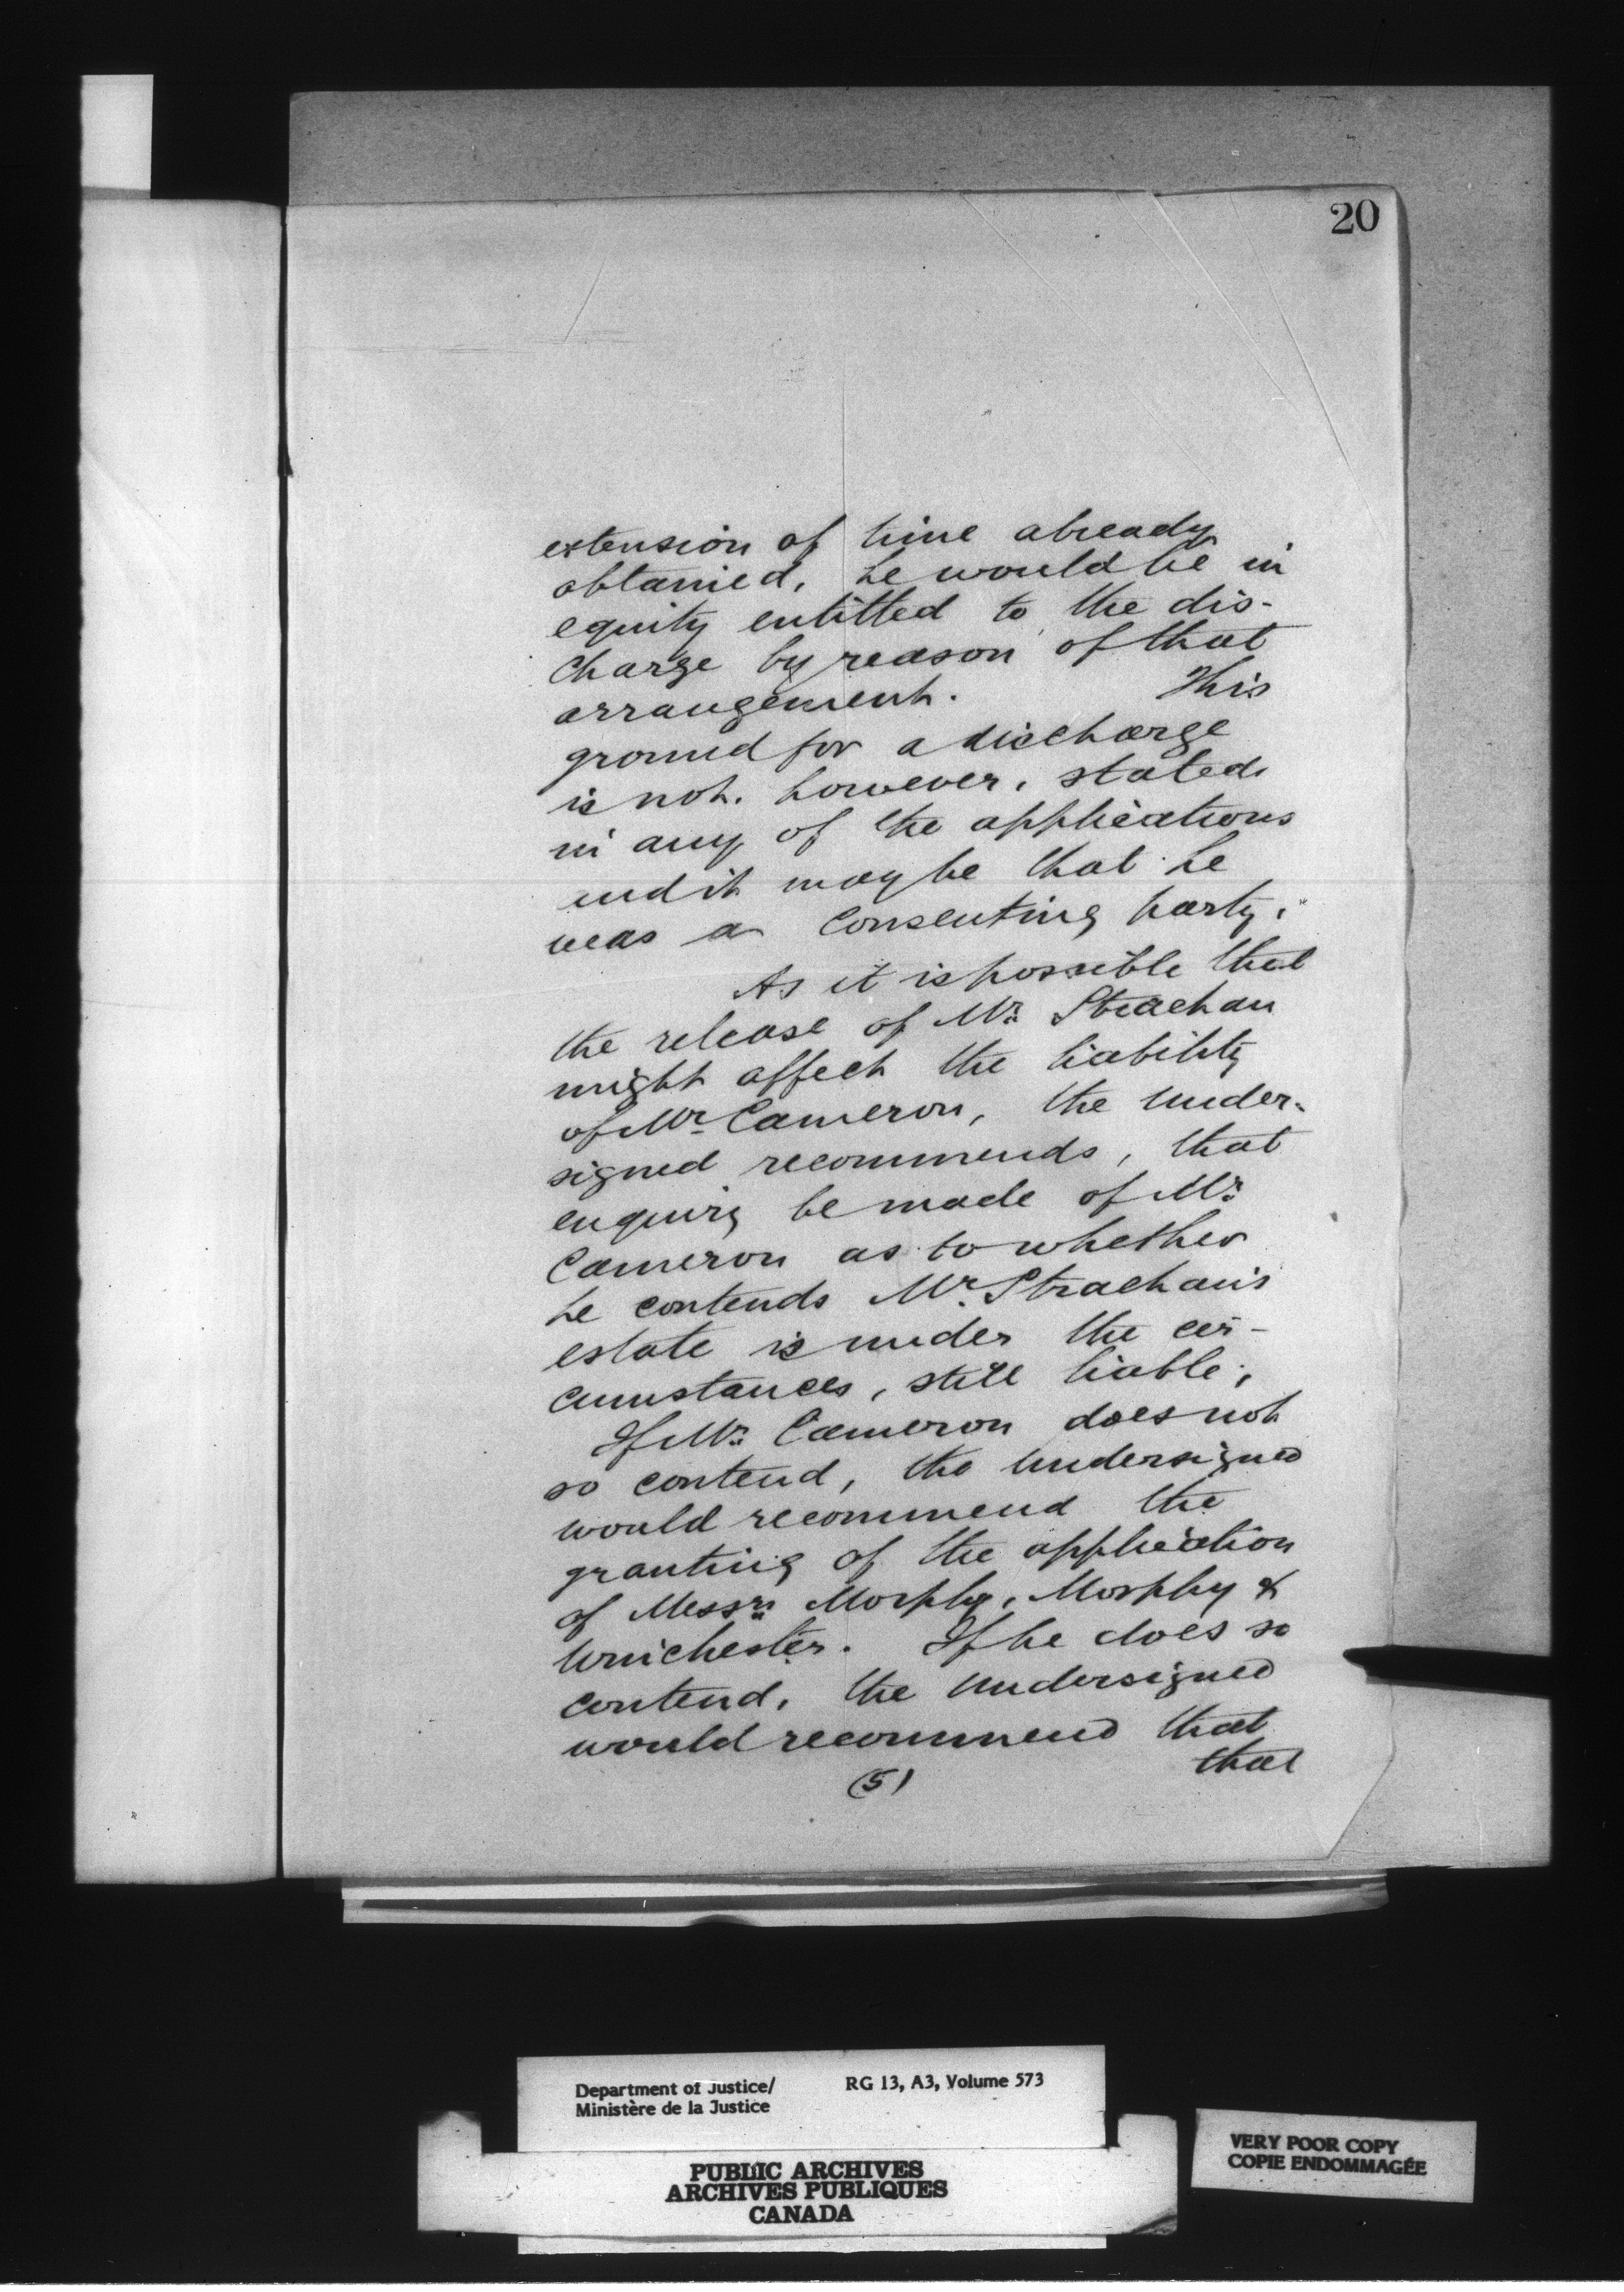 20
extension of time already
obtained, he would be in
equity entitled to the dis-
charge by reason of that
arrangement. This
ground for a discharge
is not, however, stated
in any of the applications
and it may be that he
was a consenting party.
As it is possible that
the release of Mr. Strachan
might affect the liability
of Mr. Cameron, the under-
signed recommends, that
enquiry be made of Mr.
Cameron as to whether
he contends Mr. Strachan's
estate is under the cir-
cumstances, still liable;
If Mr. Cameron does not
so contend, the undersigned
would recommend the
granting of the application
of Messrs. Morphy, Morphy &
Winchester. If he does so
contend, the undersigned
would recommend that
that
(5)
Department of Justice/
Ministère de la Justice
RG 13, A3, Volume 573
PUBLIC ARCHIVES
ARCHIVES PUBLIQUES
CANADA
VERY POOR COPY
COPIE ENDOMMAGÉE